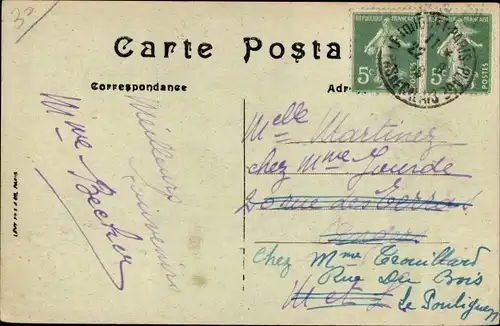 30
Carte Posta
Correspondance
Adr
REPUBLIQUE FRANÇAISE
5c POSTES
REPUBLIQUE FRANÇAISE
5c POSTES
Meilleurs
Souvenirs
Mme Becher
Melle Martinez
chez Mme Jourde
20 rue des
Chez Mme Trouillard
Rue Du Bois
Le Pouliguen